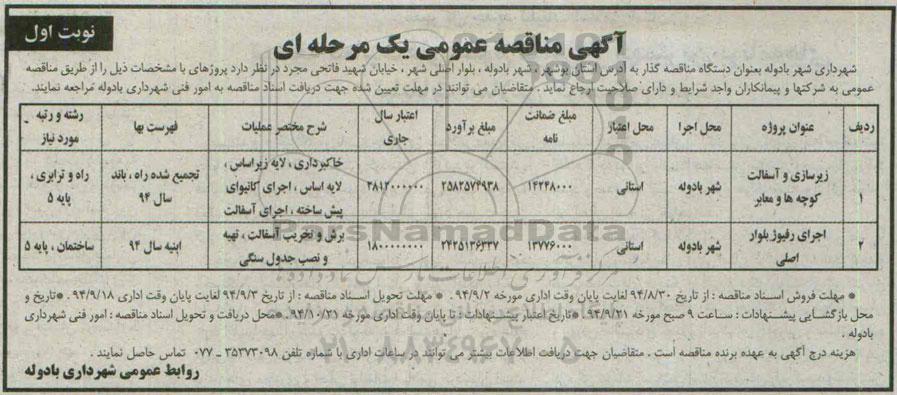 نوبت اول
آگهی مناقصه عمومی یک مرحله ای
شهرداری شهر بادوله بعنوان دستگاه مناقصه گذار به آدرس استان بوشهر، شهر بادوله، بلوار اصلی شهر، خیابان شهید فاتحی مجرد در نظر دارد پروژهای با مشخصات ذیل را از طریق مناقصه
عمومی به شرکتها و پیمانکاران واجد شرایط و دارای صلاحیت ارجاع نماید. متقاضیان می توانند در مهلت تعیین شده جهت دریافت اسناد مناقصه به امور فنی شهرداری بادوله مراجعه نمایند.
ردیف عنوان پروژه محل اجرا محل اعتبار مبلغ ضمانت نامه مبلغ برآورد اعتبار سال جاری شرح مختصر عملیات فهرست بها رشته و رتبه مورد نیاز
۱ زیرسازی و آسفالت کوچه ها و معابر شهر بادوله استانی ۱۴۲۴۸۰۰۰ ۲۵۸۲۵۷۴۹۳۸ ۲۸۱۲۰۰۰۰۰۰ خاکبرداری، لایه زیراساس، لایه اساس، اجرای کانیوای پیش ساخته، اجرای آسفالت تجمیع شده راه، باند سال ۹۴ راه و ترابری، پایه ۵
۲ اجرای رفیوژ بلوار اصلی شهر بادوله استانی ۱۳۷۷۶۰۰۰ ۲۴۲۵۱۳۶۳۳۷ ۱۸۰۰۰۰۰۰۰۰ برش و تخریب آسفالت، تهیه و نصب جدول سنگی ابنیه سال ۹۴ ساختمان، پایه ۵
* مهلت فروش اسناد مناقصه: از تاریخ ۹۴/۸/۳۰ لغایت پایان وقت اداری مورخه ۹۴/۹/۲. * مهلت تحویل اسناد مناقصه: از تاریخ ۹۴/۹/۳ لغایت پایان وقت اداری ۹۴/۹/۱۸. *تاریخ و
محل بازگشایی پیشنهادات: ساعت ۹ صبح مورخه ۹۴/۹/۲۱ *تاریخ اعتبار پیشنهادات: تا پایان وقت اداری مورخه ۹۴/۱۰/۲۱. *محل دریافت و تحویل اسناد مناقصه: امور فنی شهرداری
بادوله.
هزینه درج آگهی به عهده برنده مناقصه است. متقاضیان جهت دریافت اطلاعات بیشتر می توانند در ساعات اداری با شماره تلفن ۳۵۳۷۳۰۹۸ ـ ۰۷۷ تماس حاصل نمایند.
روابط عمومی شهرداری بادوله
ParsNamadData
۰۲۱-۸۸۳۴۹۶۷۰-۵